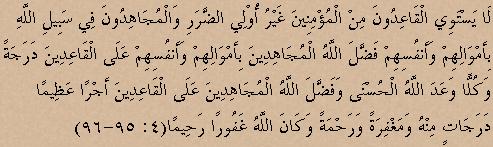 لَا يَسْتَوِي الْقَاعِدُونَ مِنَ الْمُؤْمِنِينَ غَيْرُ أُولِي الضَّرَرِ وَالْمُجَاهِدُونَ فِي سَبِيلِ اللَّهِ
بِأَمْوَالِهِمْ وَأَنفُسِهِمْ فَضَّلَ اللَّهُ الْمُجَاهِدِينَ بِأَمْوَالِهِمْ وَأَنفُسِهِمْ عَلَى الْقَاعِدِينَ دَرَجَةً
وَكُلًّا وَعَدَ اللَّهُ الْحُسْنَى وَفَضَّلَ اللَّهُ الْمُجَاهِدِينَ عَلَى الْقَاعِدِينَ أَجْرًا عَظِيمًا
دَرَجَاتٍ مِنْهُ وَمَغْفِرَةً وَرَحْمَةً وَكَانَ اللَّهُ غَفُورًا رَحِيمًا(٤: ٩٥-٩٦)